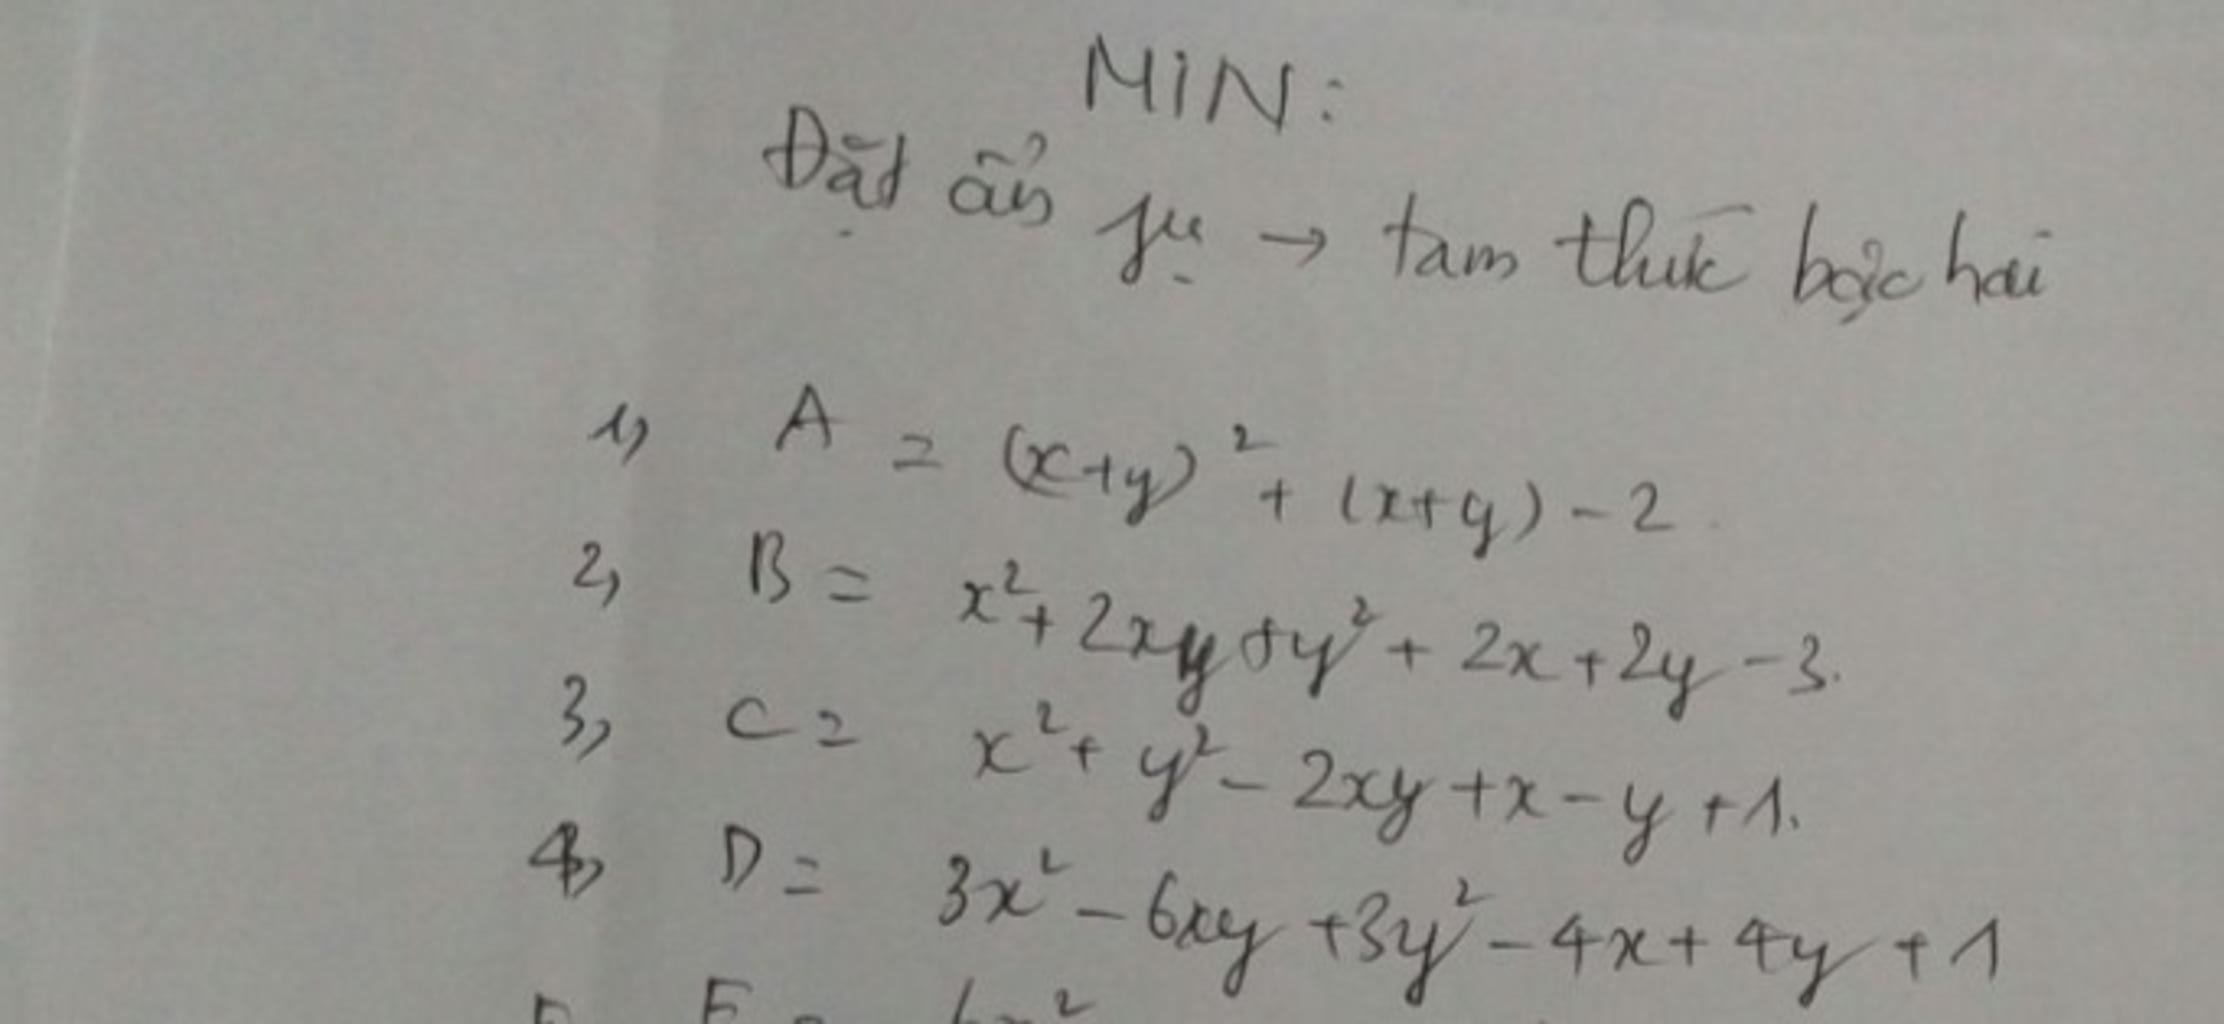 MIN:
Đặt ẩn fụ → tam thức bậc hai
1, A = (x+y)² + (x+y) - 2
2, B = x² + 2xy + y² + 2x + 2y - 3.
3, C = x² + y² - 2xy + x - y + 1.
4, D = 3x² - 6xy + 3y² - 4x + 4y + 1